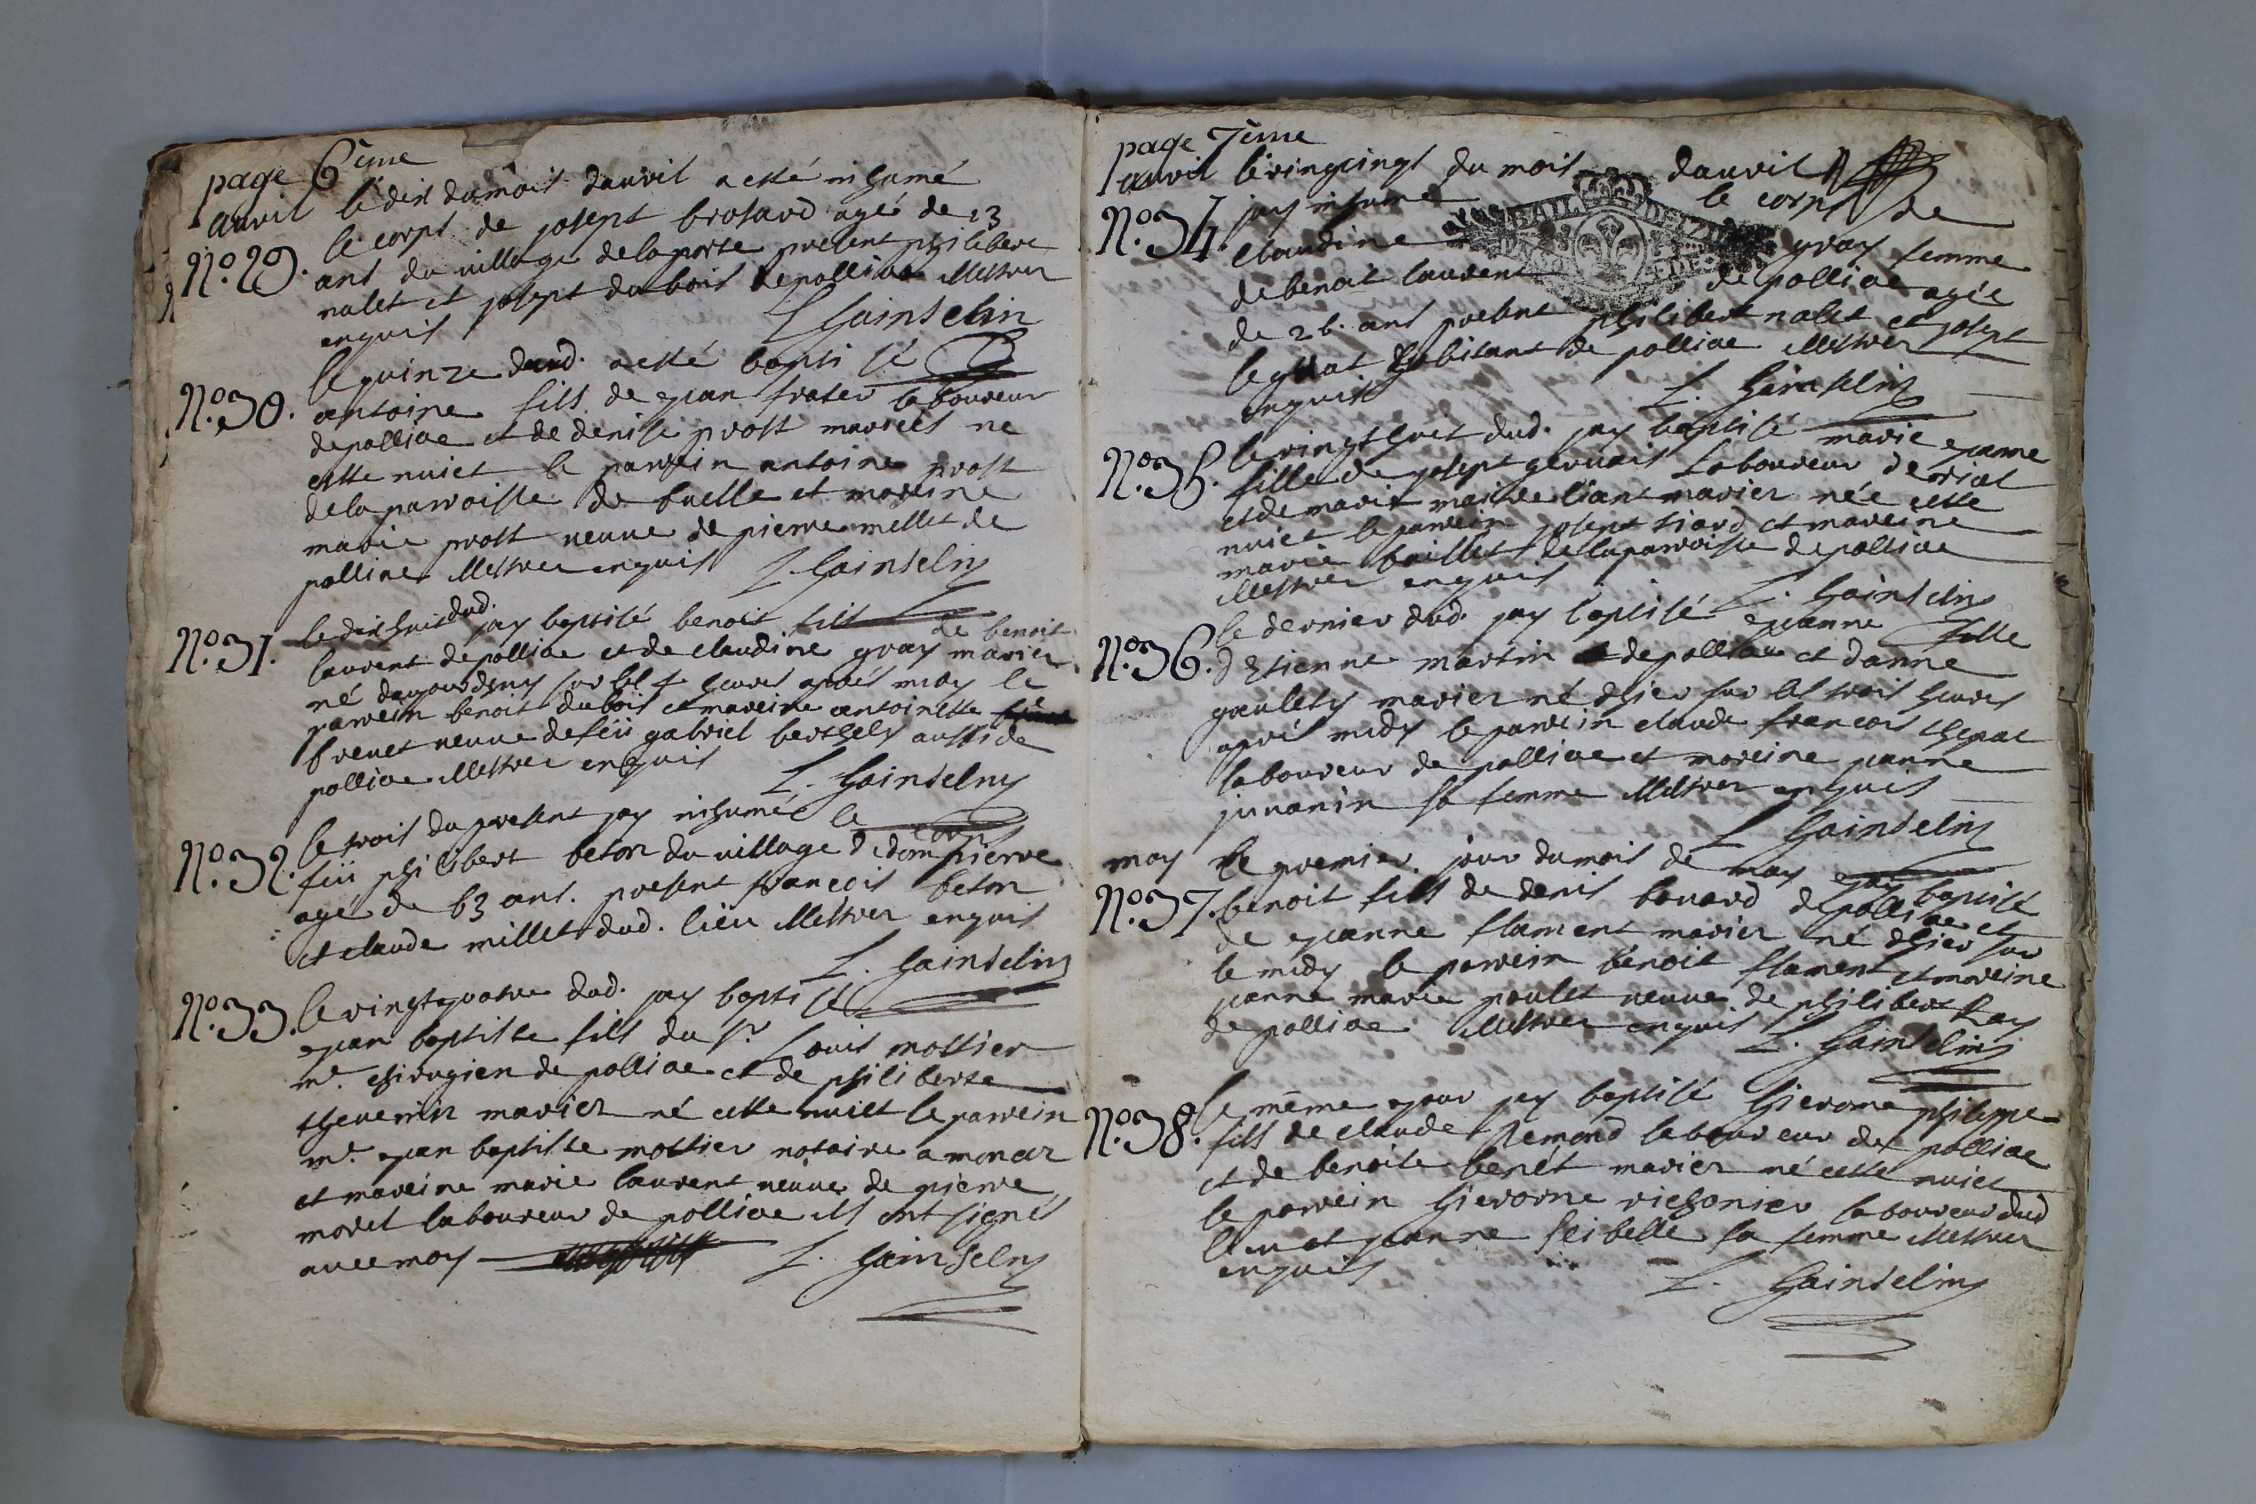 page 6ème
avril le dix du mois davril a esté inhumé
N.o 29. le corps de josept brosard agé de 13
ans du village de la porte present philibert
nalet et josept du bois de polliae illitwer
enquis L Gainselin
N.o 30. le quinze dud. a esté bapti sé
antoine fils de jean frater laboureur
de polliae et de denise prost mariés ne
cette nuiet le parrein antoine prost
de la parroisse de buelle et mareine
marie prost veuve de pierre millet de
polliae illitwer enquis L. Gainselin
N.o 31. le dix huit dud. jay baptisé benoit fils de benoit
laurent de polliae et de claudine gray mariez
né daujourdhuy sur les 4 heures aprés midy le
parrein benoit dubois et mareine antoinette
brevet veuve de feu gabriel berthely aussi de
polliae illitwer enquis L. Gainselin
N.o 32. le trois du present jay inhumé le corps
feu philibert beton du village de dompierre
agé de 63 ans. present francois beton
et claude millet dud. lieu illitwer enquis
L. Gainselin
N.o 33. le vingt quatre dud. jay bapti sé
jean baptiste fils du sr. Louis mottier
me. chirugien de polliae et de philiberte
thevenin mariez né cette nuiet le parrein
me. jean baptiste mottier notaire a
et mareine marie laurent veuve de pierre
morel laboureur de polliae ils ont signés
avec moy L. Gainselin
page 7ème
avril le vingcinqt du mois davril
N.o 34. jay inhumé le corps de
claudine gray femme
BAIL DE
de benoit laurent de polliae agée
de 26. ans present philibert nalet et josept
habitant de polliae illitwer
enquis L. Gainselin
N.o 35. le vingt huit dud. jay baptisé marie jeanne
fille de josept gervais laboureur de
et de marie mariez née cette
nuiet le parrein josept et mareine
marie de la parroisse de polliae
illitwer enquis L. Gainselin
N.o 36. le dernier dud. jay baptisé jeanne fille
d'Etienne martin de polliae et danne
mariez né dhier sur les trois heures
aprés midy le parrein claude francois
laboureur de polliae et mareine janne
junanin sa femme illitwer enquis
L Gainselin
may le premier jour du mois de may jay baptisé
N.o 37. benoit fils de denis de polliae et
de jeanne flament mariez né dhier sur
le midy le parrein bénoit flament et mareine
janne marie poulet veuve de philibert Ray
de polliae illitwer enquis L. Gainselin
N.o 38. le méme jour jay baptisé hierome philippe
fils de claude Remond laboureur de polliae
et de benoite mariez né cette nuiet
le parrein hierome richonier laboureur dud
lieu et jeanne sa femme illitwer
enquis L. Gainselin